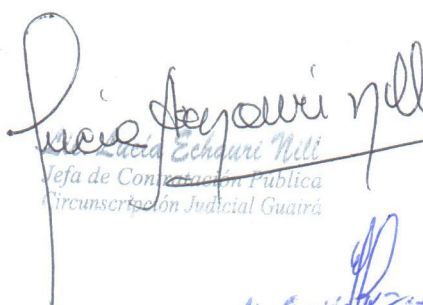 Lucia Echauri Nill
Lic. Lucía Echauri Nill
Jefa de Contratación Pública
Circunscripción Judicial Guairá